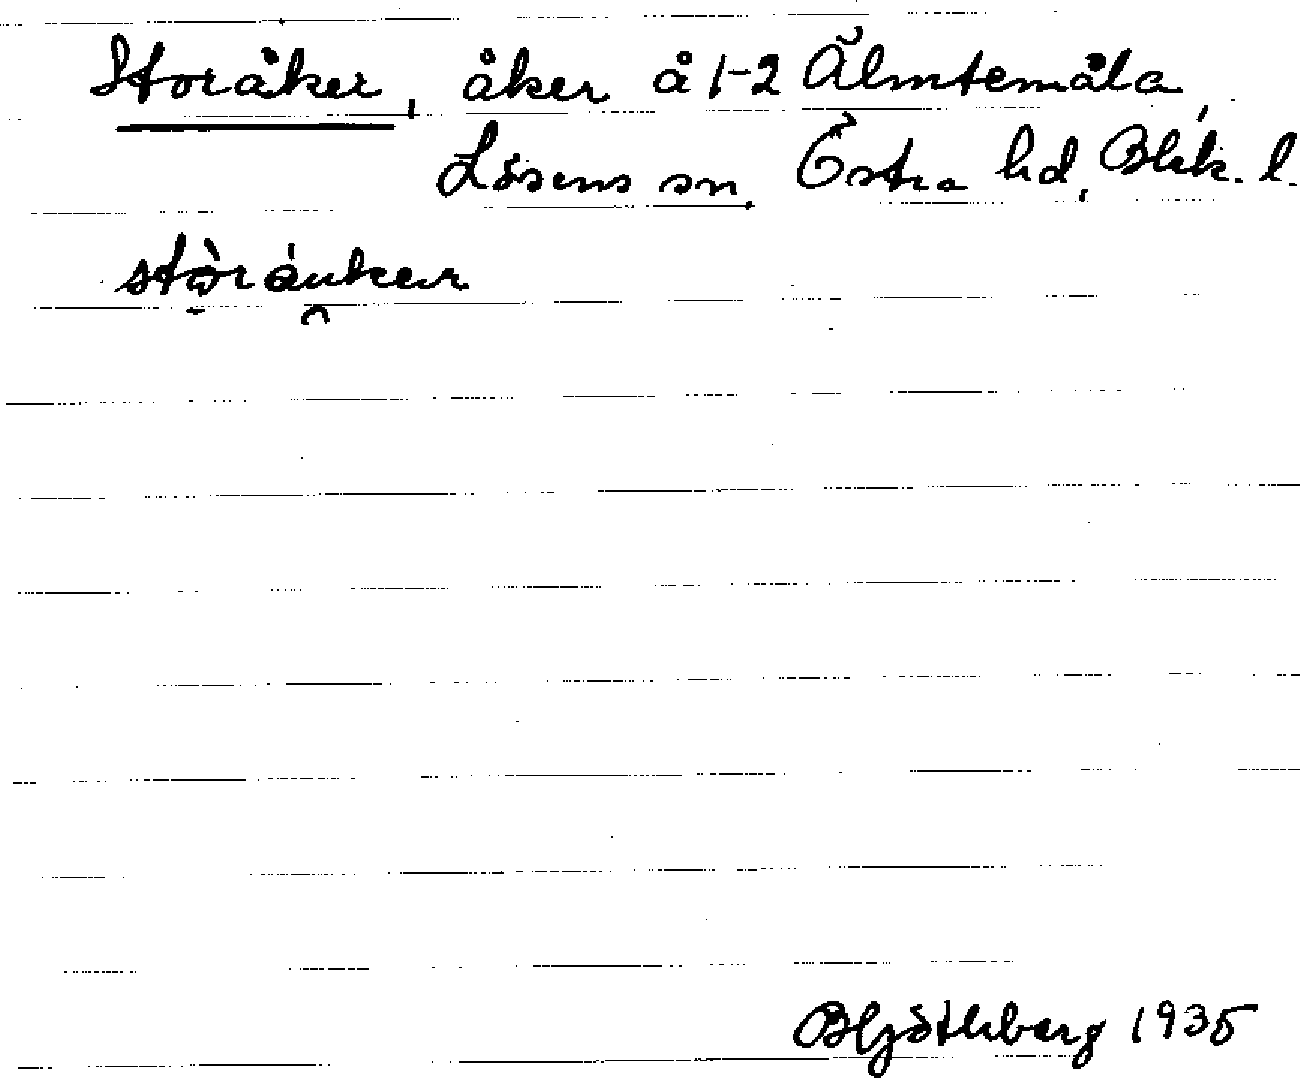 Storåker, åker å 1-2 Älmtemåla,
Lösens sn. Östra hd, Blek. l.
stòráuker
B Götlberg 1935